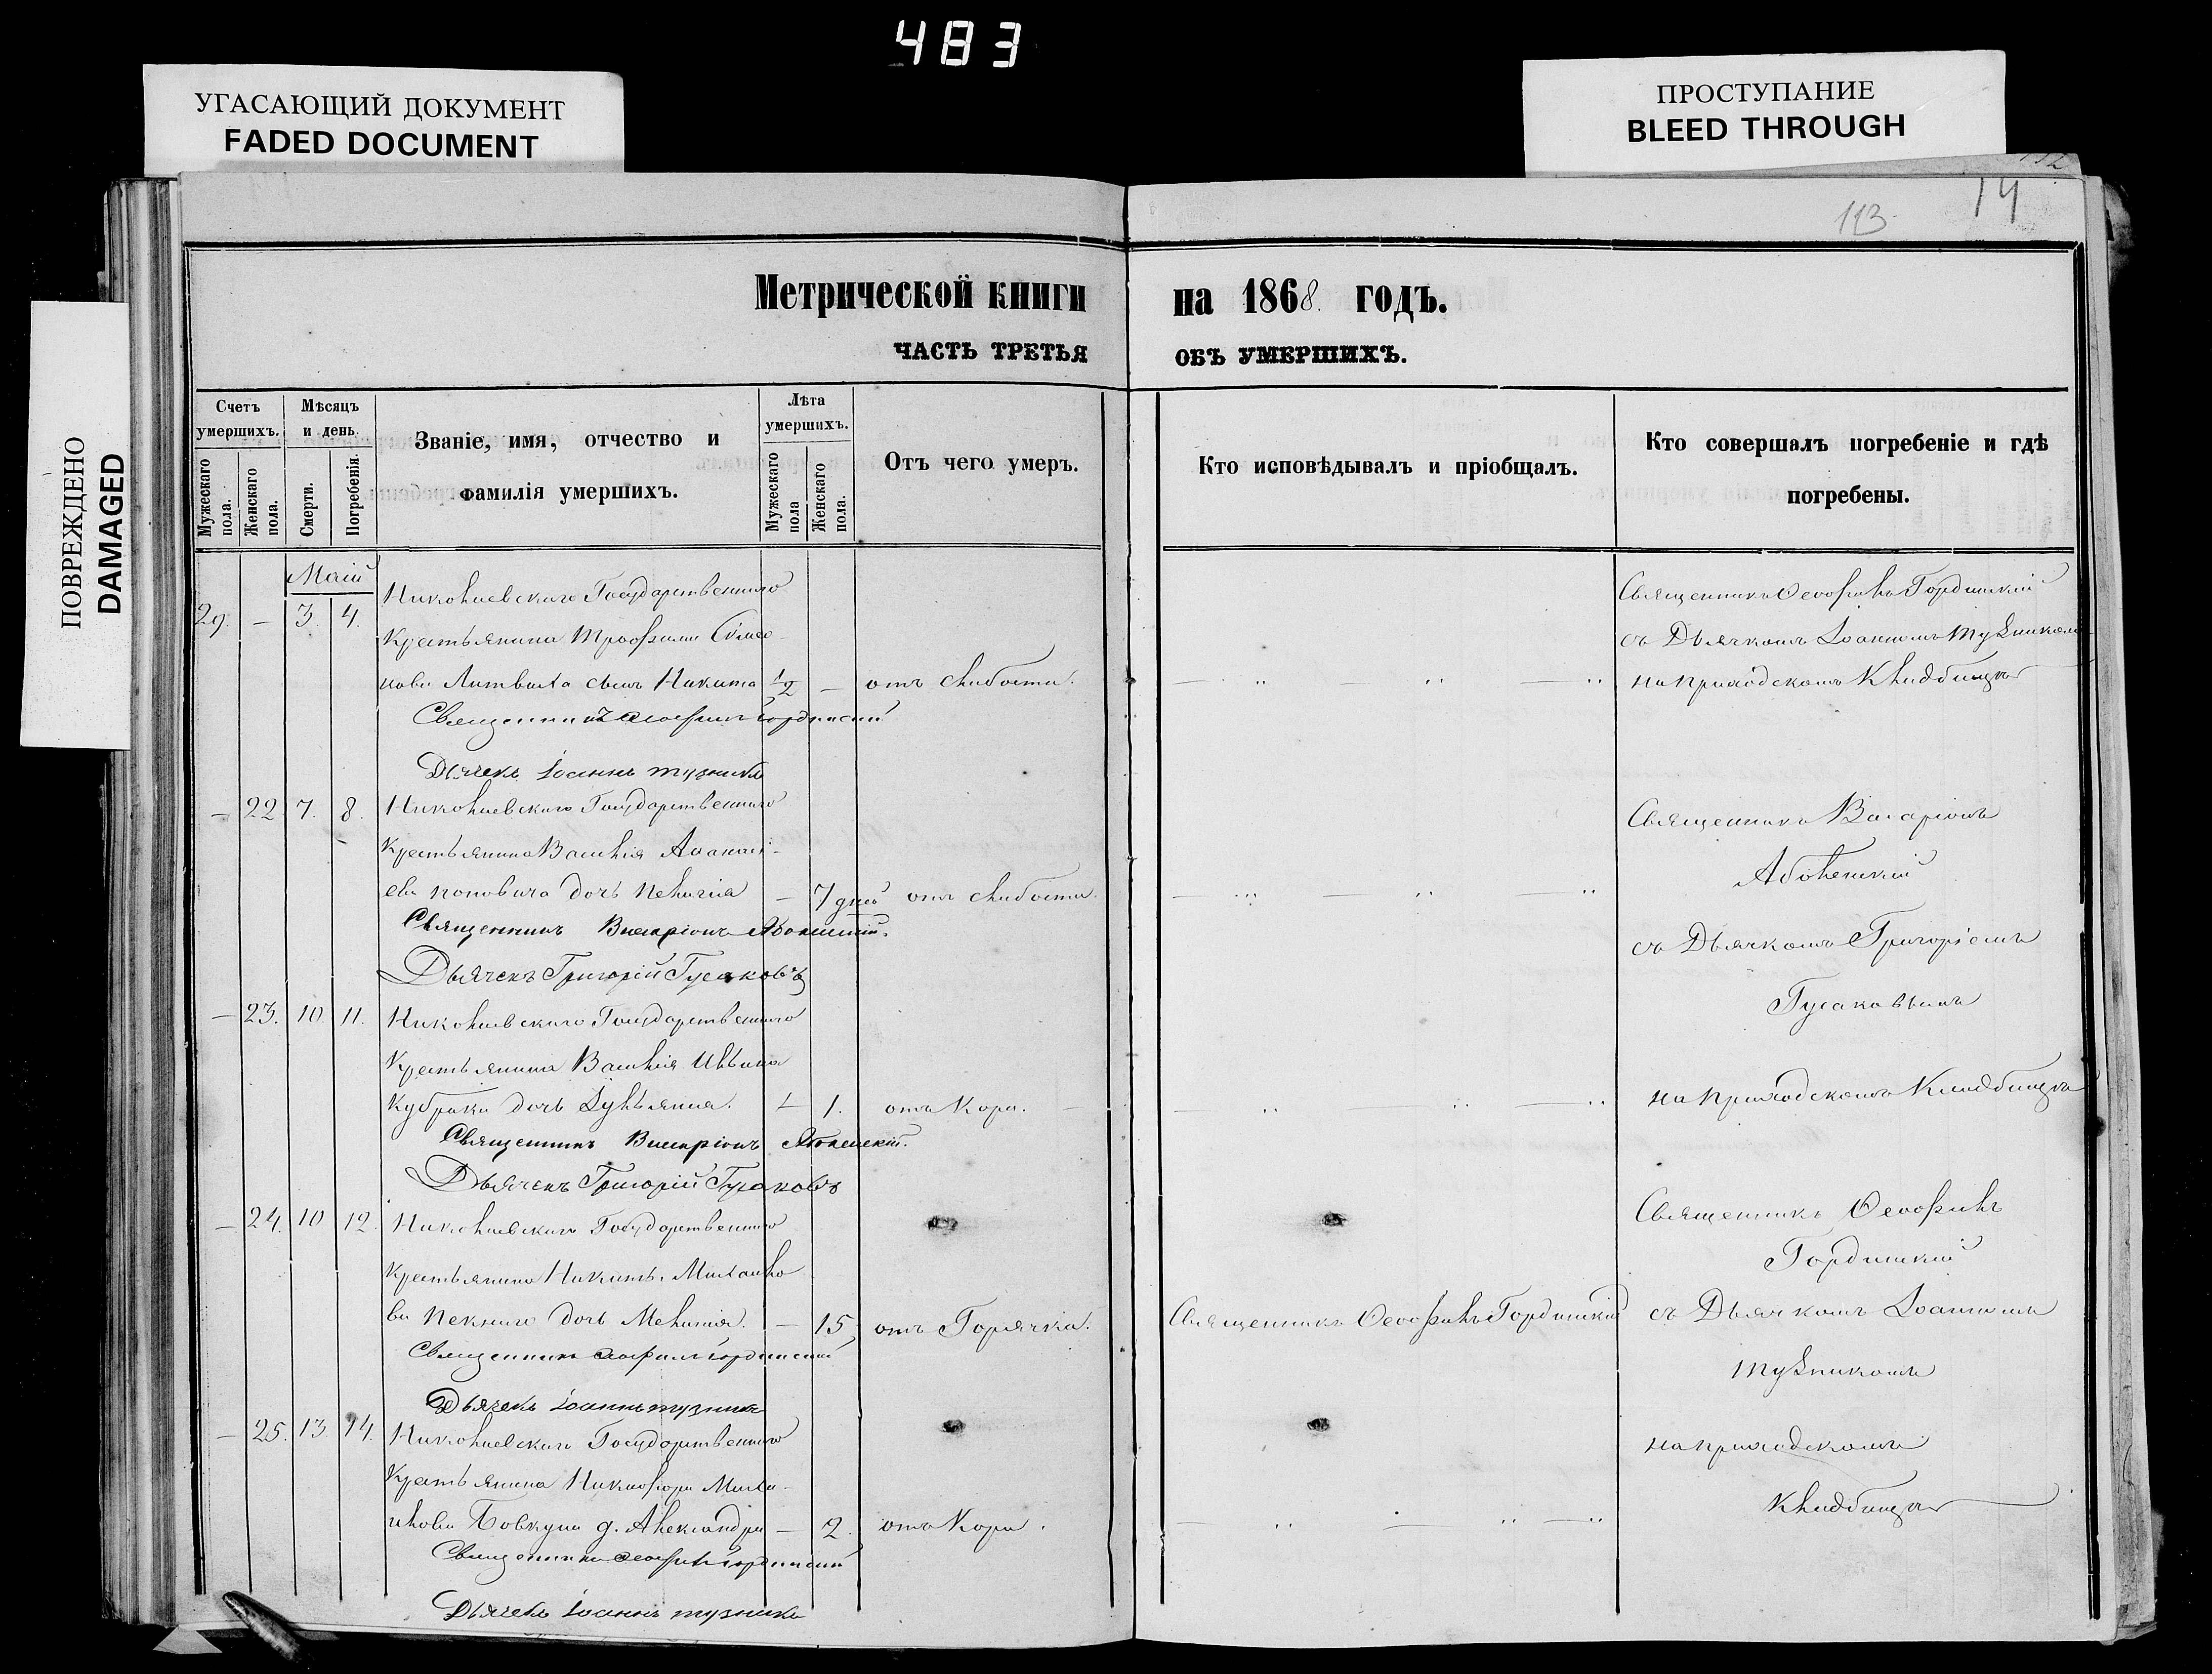 483
УГАСАЮЩИЙ ДОКУМЕНТ
FADED DOCUMENT
ПРОСТУПАНИЕ
BLEED THROUGH
ПОВРЕЖДЕНО
DAMAGED
113.
14
Метрической книги на 1868. годъ.
ЧАСТЬ ТРЕТЬЯ ОБЪ УМЕРШИХЪ.
Счетъ умершихъ.
Мужескаго пола.
Женскаго пола.
Мѣсяцъ и день.
Смерти.
Погребенія.
Званіе, имя, отчество и
фамилія умершихъ.
Лѣта умершихъ.
Мужескаго пола
Женскаго пола.
Отъ чего умеръ.
Кто исповѣдывалъ и пріобщалъ.
Кто совершалъ погребеніе и гдѣ
погребены.
Маій
29. — 3. 4. Николаевскаго Государственнаго
Крестьянина Трофима Симо-
нова Литвина сынъ Никита 1/2 — отъ слабости.
Священникъ Ѳеофилъ Гординскій
Дьячекъ Іоаннъ Тузникъ
Священникъ Ѳеофилъ Гординскій
съ Дьячкомъ Іоанномъ Тузникомъ
на приходскомъ Кладбищѣ
— 22. 7. 8. Николаевскаго Государственнаго
Крестьянина Василія Аѳанасі-
ева Поповича дочь Пелагія — 7 дней отъ слабости.
Священникъ Виссаріонъ
Дьячекъ Григорій Гусаковъ
Священникъ Виссаріонъ
съ Дьячкомъ Григоріемъ
Гусаковымъ
— 23. 10. 11. Николаевскаго Государственнаго
Крестьянина Василія Ивана
Кубрака дочь Лукіянія. — 1. отъ Кори.
Священникъ Виссаріонъ
Дьячекъ Григорій Гусаковъ
на приходскомъ Кладбищѣ
— 24. 10 12. Николаевскаго Государственнаго
Крестьянина Никиты Михайло
ва дочь Меланія. — 15. отъ Горячки.
Священникъ Ѳеофилъ Гординскій
Дьячекъ Іоаннъ Тузникъ
Священникъ Ѳеофилъ Гординскій
Священникъ Ѳеофилъ
Гординскій
съ Дьячкомъ Іоанномъ
Тузникомъ
— 25. 13. 14. Николаевскаго Государственнаго
Крестьянина Никифора Миха-
илова Бовкуна д. Александра — 2. отъ Кори.
Священникъ Ѳеофилъ Гординскій
Дьячекъ Іоаннъ Тузникъ
на приходскомъ
Кладбищѣ